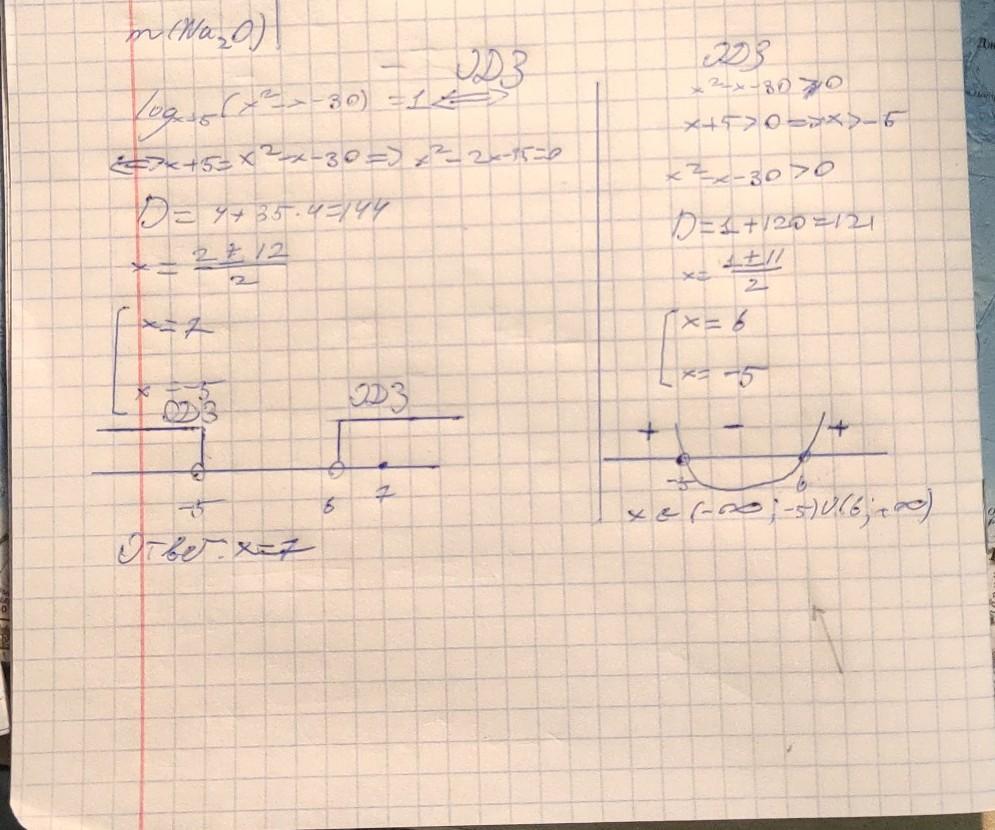 m(Na₂O)
ОДЗ
log_{x+5}(x²-x-30) = 1 <=>
<=> x+5 = x²-x-30 => x²-2x-35=0
D = 4+35·4=144
x = (2±12)/2
[ x=7
x=-5
ОДЗ ОДЗ
-5 6 7
Ответ: x=7
ОДЗ
x²-x-30>0
x+5>0 => x>-5
x²-x-30>0
D=1+120=121
x= (1±11)/2
[ x=6
x=-5
+ - +
-5 6
x ∈ (-∞; -5)∪(6; +∞)